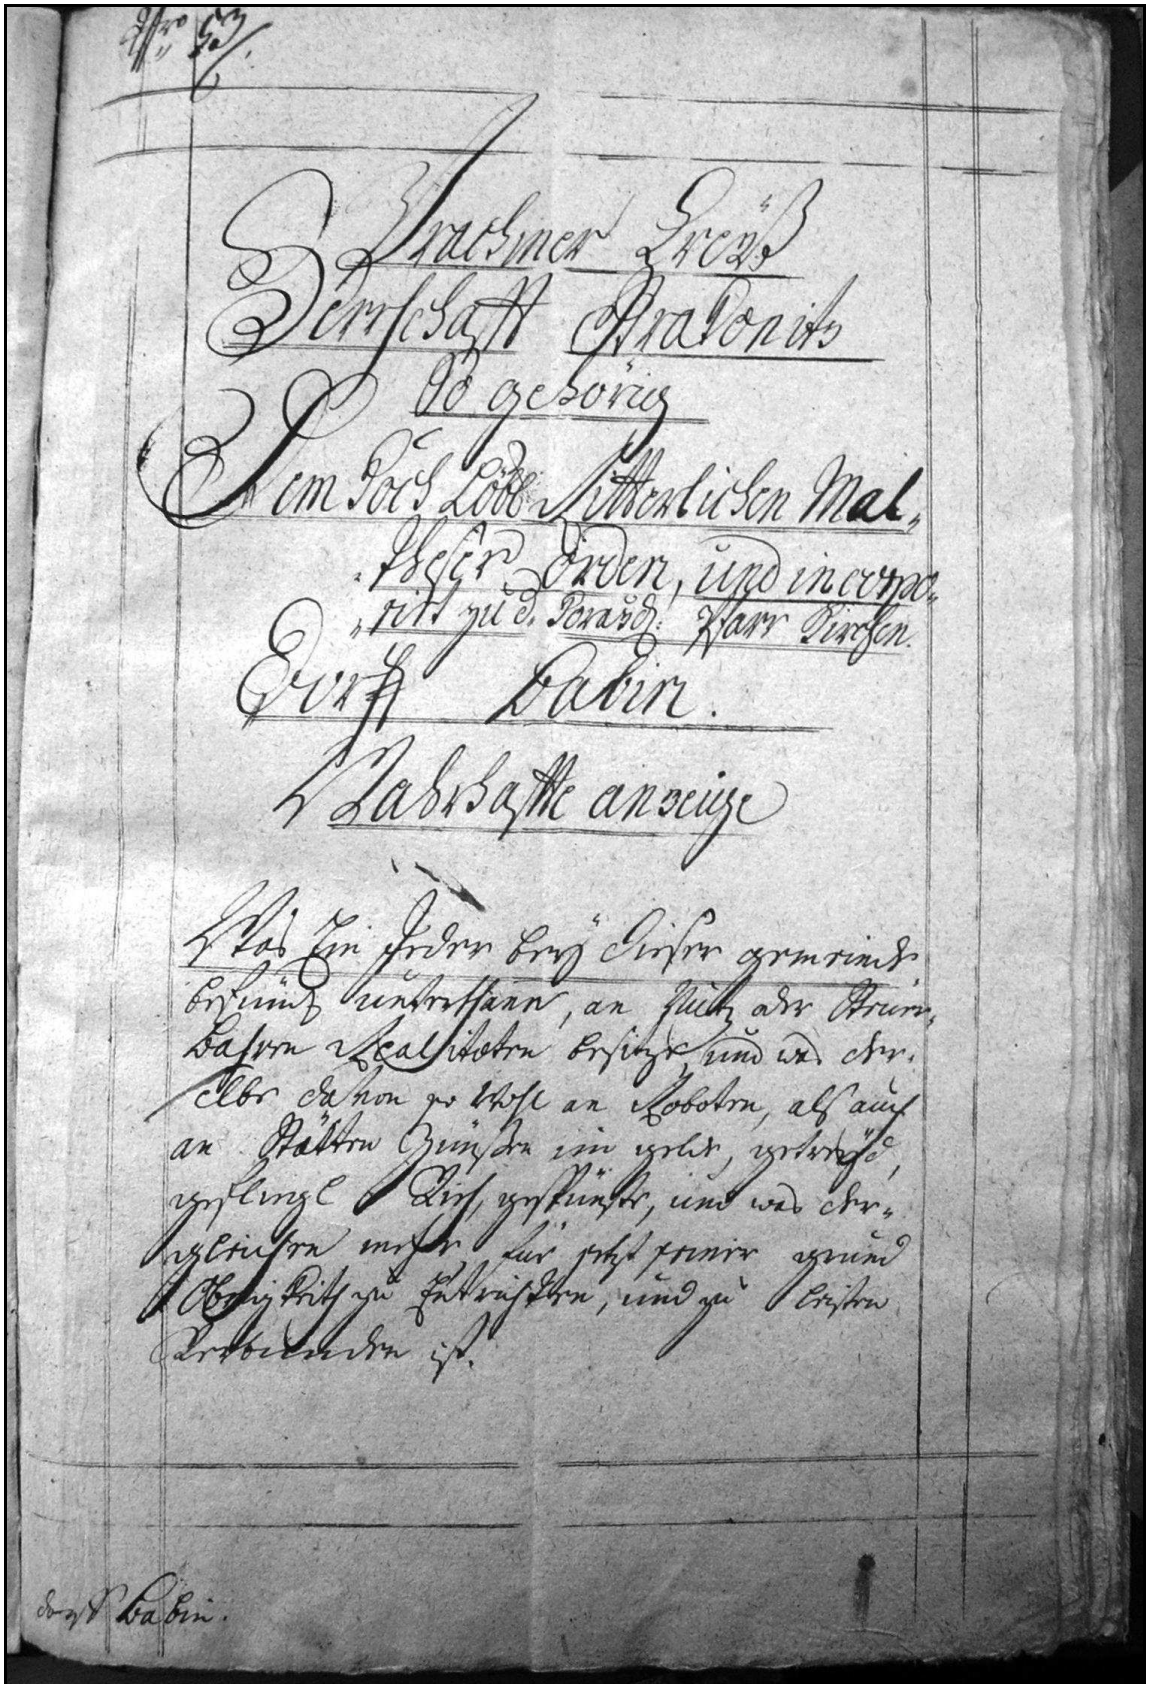 Nro 53
Prachiner Creÿß
Herrschafft Strakonitz
So gehörig
Dem Hoch Löbl Ritterlichen Mal„
„theser Orden, und incorpo„
„rirt zu d. Horažd: Pfarr Kirchen.
Dorff Babin.
Wahrhaffte anzeige
Was Ein Jeder beÿ dieser gemeinde
befindl unterthann, an Nutz oder Steüer„
bahren Realitæten besitze, und was der„
selbe davon so wohl an Roboten, als auch
an Stätten Zünßen im gelde, getreÿd,
gefliegl Vieh, gespünste, und was der„
gleichen mehr für jetzt seiner grund
Obrigkeith zu Entrichten, und zu leisten
Verbunden ist.
dorf Babin.